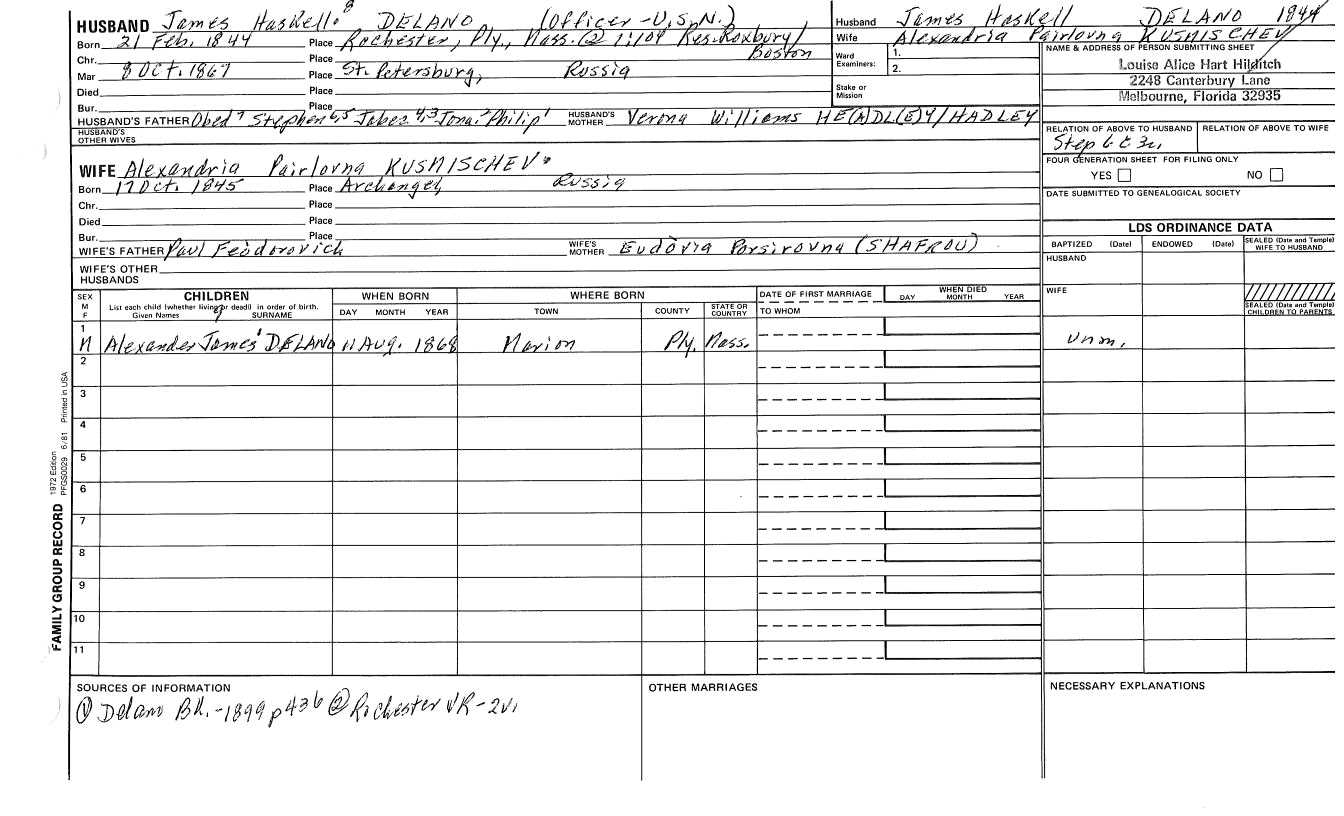 HUSBAND James Haskell 8 DELANO (Officer - U.S.N.)
Born 21 Feb. 1844 Place Rochester, Ply., Mass. (2) 1:104 Res. Roxbury/
Boston
Chr. Place
Mar 8 Oct. 1867 Place St. Petersburg, Russia
Died Place
Bur. Place
HUSBAND'S FATHER Obed 7 Stephen 6,5 Jabez 4,3 Jona. 2 Philip 1 HUSBAND'S MOTHER Verona Williams HE(A)DL(E)Y/HADLEY
HUSBAND'S OTHER WIVES
WIFE Alexandria Pairlovna KUSMISCHEV
Born 17 Oct. 1845 Place Archangel, Russia
Chr. Place
Died Place
Bur. Place
WIFE'S FATHER Paul Feodorovich WIFE'S MOTHER Eudovia Porsirovna (SHAFROU)
WIFE'S OTHER HUSBANDS
Husband James Haskell DELANO 1844
Wife Alexandria Pairlovna KUSMISCHEV
Ward Examiners: 1.
2.
Stake or Mission
NAME & ADDRESS OF PERSON SUBMITTING SHEET
Louise Alice Hart Hilditch
2248 Canterbury Lane
Melbourne, Florida 32935
RELATION OF ABOVE TO HUSBAND RELATION OF ABOVE TO WIFE
Step 6 C 3r,
FOUR GENERATION SHEET FOR FILING ONLY
YES NO
DATE SUBMITTED TO GENEALOGICAL SOCIETY
LDS ORDINANCE DATA
BAPTIZED (Date) ENDOWED (Date) SEALED (Date and Temple) WIFE TO HUSBAND
HUSBAND
WIFE
SEALED (Date and Temple) CHILDREN TO PARENTS
SEX M F CHILDREN WHEN BORN WHERE BORN DATE OF FIRST MARRIAGE WHEN DIED
List each child (whether living or dead) in order of birth.
Given Names SURNAME DAY MONTH YEAR TOWN COUNTY STATE OR COUNTRY TO WHOM DAY MONTH YEAR
1 M Alexander James DELANO 11 Aug. 1868 Marion Ply. Mass. Unm.
2
3
4
5
6
7
8
9
10
11
FAMILY GROUP RECORD 1972 Edition PFGS0029 6/81 Printed in USA
SOURCES OF INFORMATION
(1) Delano Bk. - 1899 p436 (2) Rochester VR - 2v,
OTHER MARRIAGES
NECESSARY EXPLANATIONS